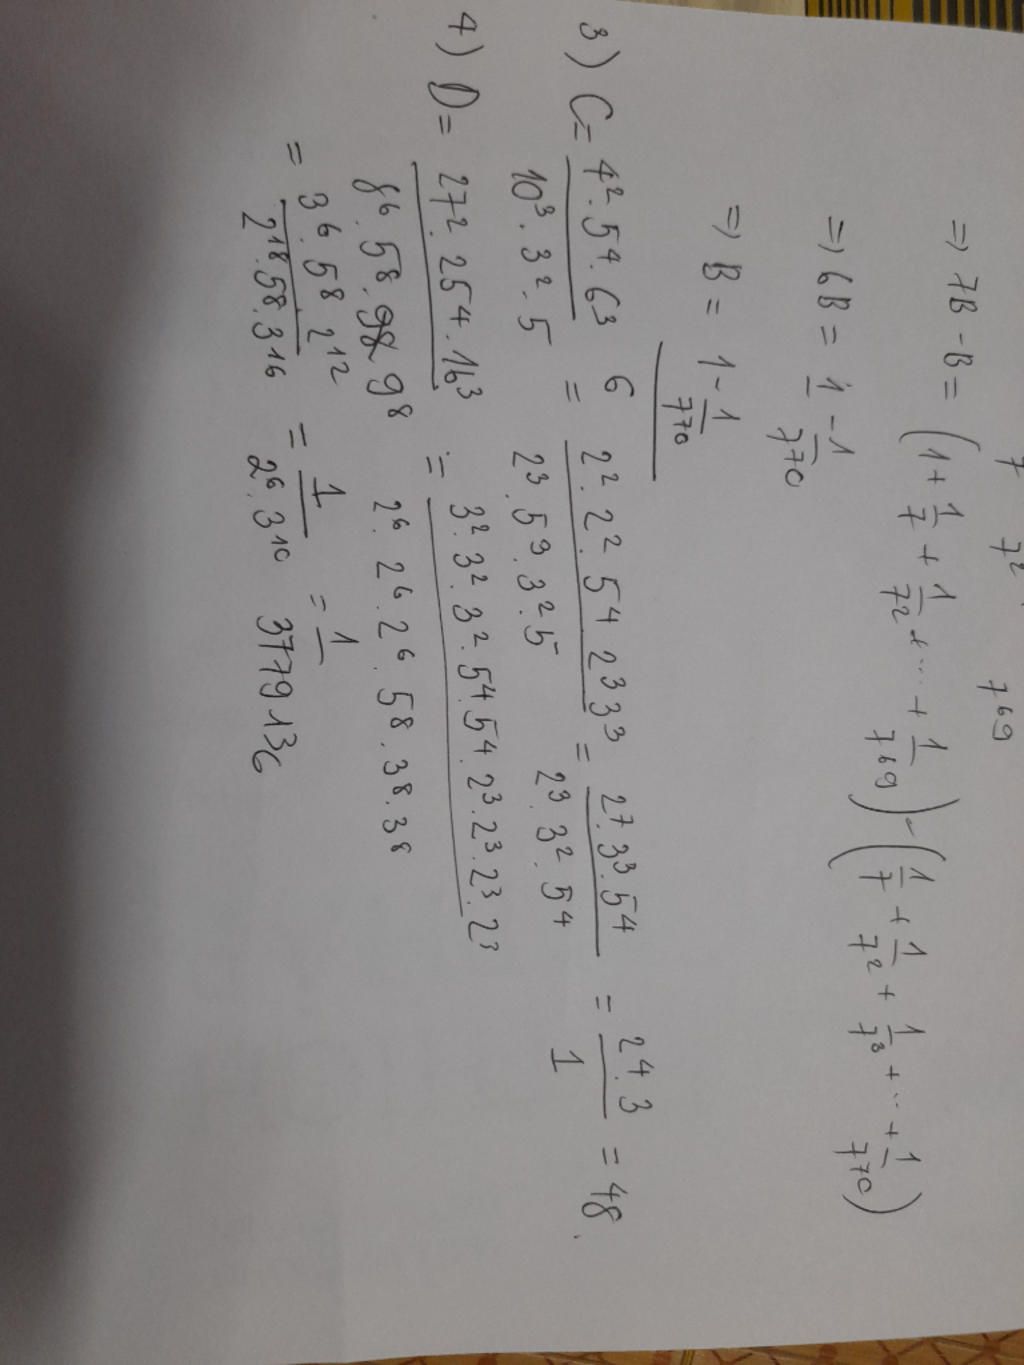 7 7² 7⁶⁹
=> 7B - B = (1 + 1/7 + 1/7² + ... + 1/7⁶⁹) - (1/7 + 1/7² + 1/7³ + ... + 1/7⁷⁰)
=> 6B = 1 - 1/7⁷⁰
=> B = (1 - 1/7⁷⁰)/6
3) C = (4².5⁴.6³)/(10³.3².5) = (2².2².5⁴ 2³3³)/(2³.5³.3².5) = (2⁷.3³.5⁴)/(2³.3².5⁴) = (2⁴.3)/1 = 48.
4) D = (27².25⁴.16³)/(8⁶.5⁸.9⁸) = (3².3².3².5⁴.5⁴.2³.2³.2³.2³)/(2⁶.2⁶.2⁶.5⁸.3⁸.3⁸)
= (3⁶.5⁸ 2¹²)/(2¹⁸.5⁸.3¹⁶) = 1/(2⁶.3¹⁰) = 1/3779136